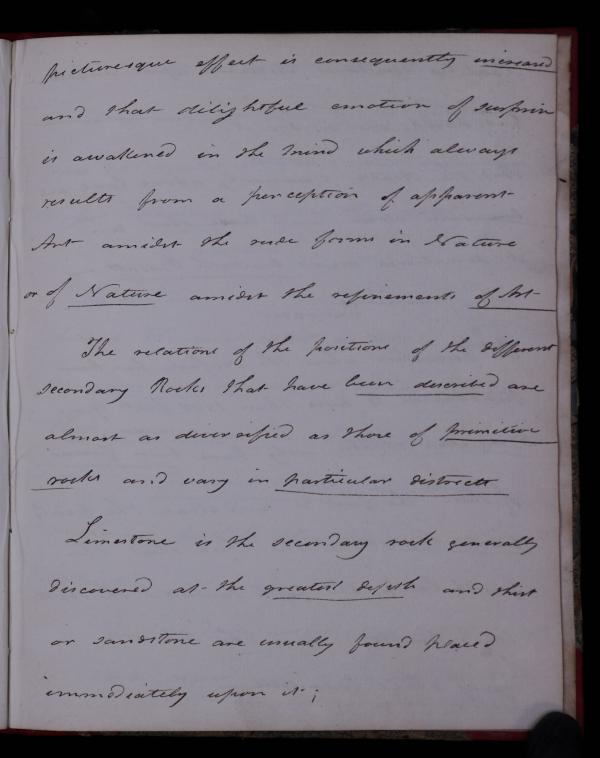 picturesque effect is consequently increased
and that delightful emotion of surprise
is awakened in the mind which always
results from a perception of apparent
Art amidst the rude forms in Nature
or of Nature amidst the refinements of Art
The relations of the positions of the different
secondary Rocks that have been described are
almost as diversified as those of primitive
rocks and vary in particular districts
Limestone is the secondary rock generally
discovered at the greatest depth and
or sandstone are usually found placed
immediately upon it;